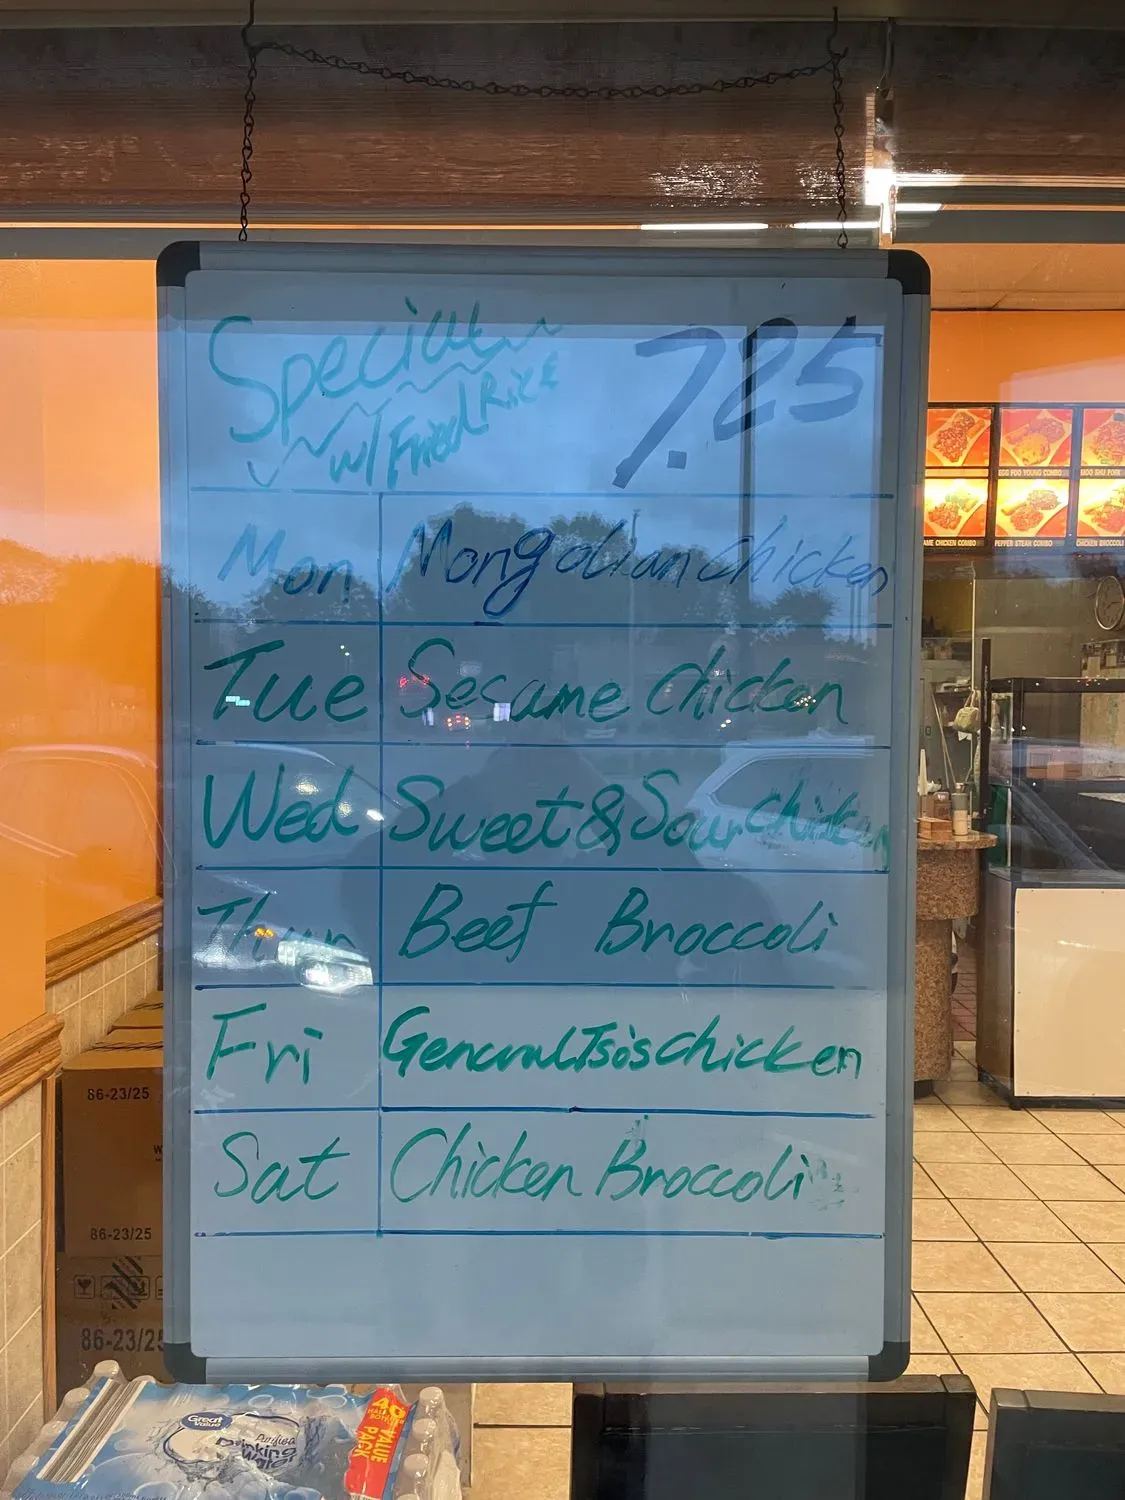 Special 7.25
w/ Fried Rice
Mon Mongolian chicken
Tue Sesame chicken
Wed Sweet & Sour chicken
Thur Beef Broccoli
Fri General Tso's chicken
Sat Chicken Broccoli
EGG FOO YOUNG COMBO
MOO SHU PORK
AME CHICKEN COMBO
PEPPER STEAK COMBO
CHICKEN BROCCOLI
86-23/25
W
86-23/25
86-23/25
Great Value
Purified
Drinking Water
40
HALF
BOTTLES
VALUE
PACK